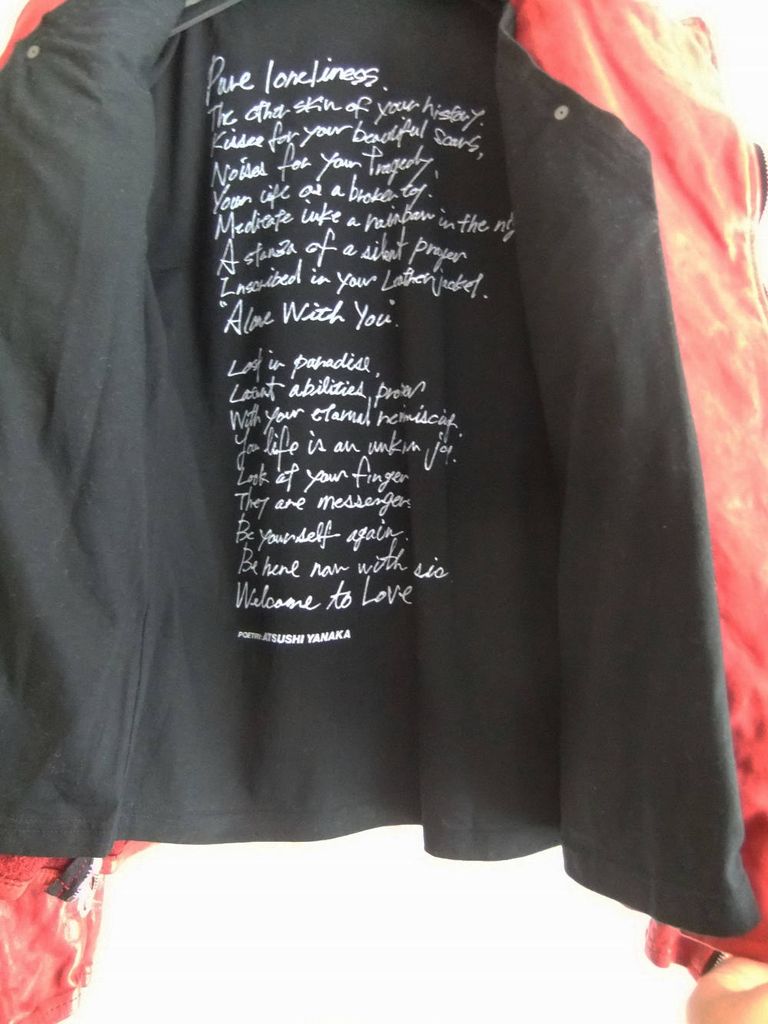 Pure loneliness.
The other skin of your history,
Kisses for your beautiful scars,
Noises for your Tragedy,
Your life as a broken toy.
Medicate like a rainbow in the
A stanza of a silent prayer
Inscribed in your Leather jacket.
"Alone With You".
Lost in paradise,
Latent abilities prover
With your eternal
You life is an
Look at your finger
They are messengers
Be yourself again.
Be here now with sic
Welcome to Love
POETRY: ATSUSHI YANAKA